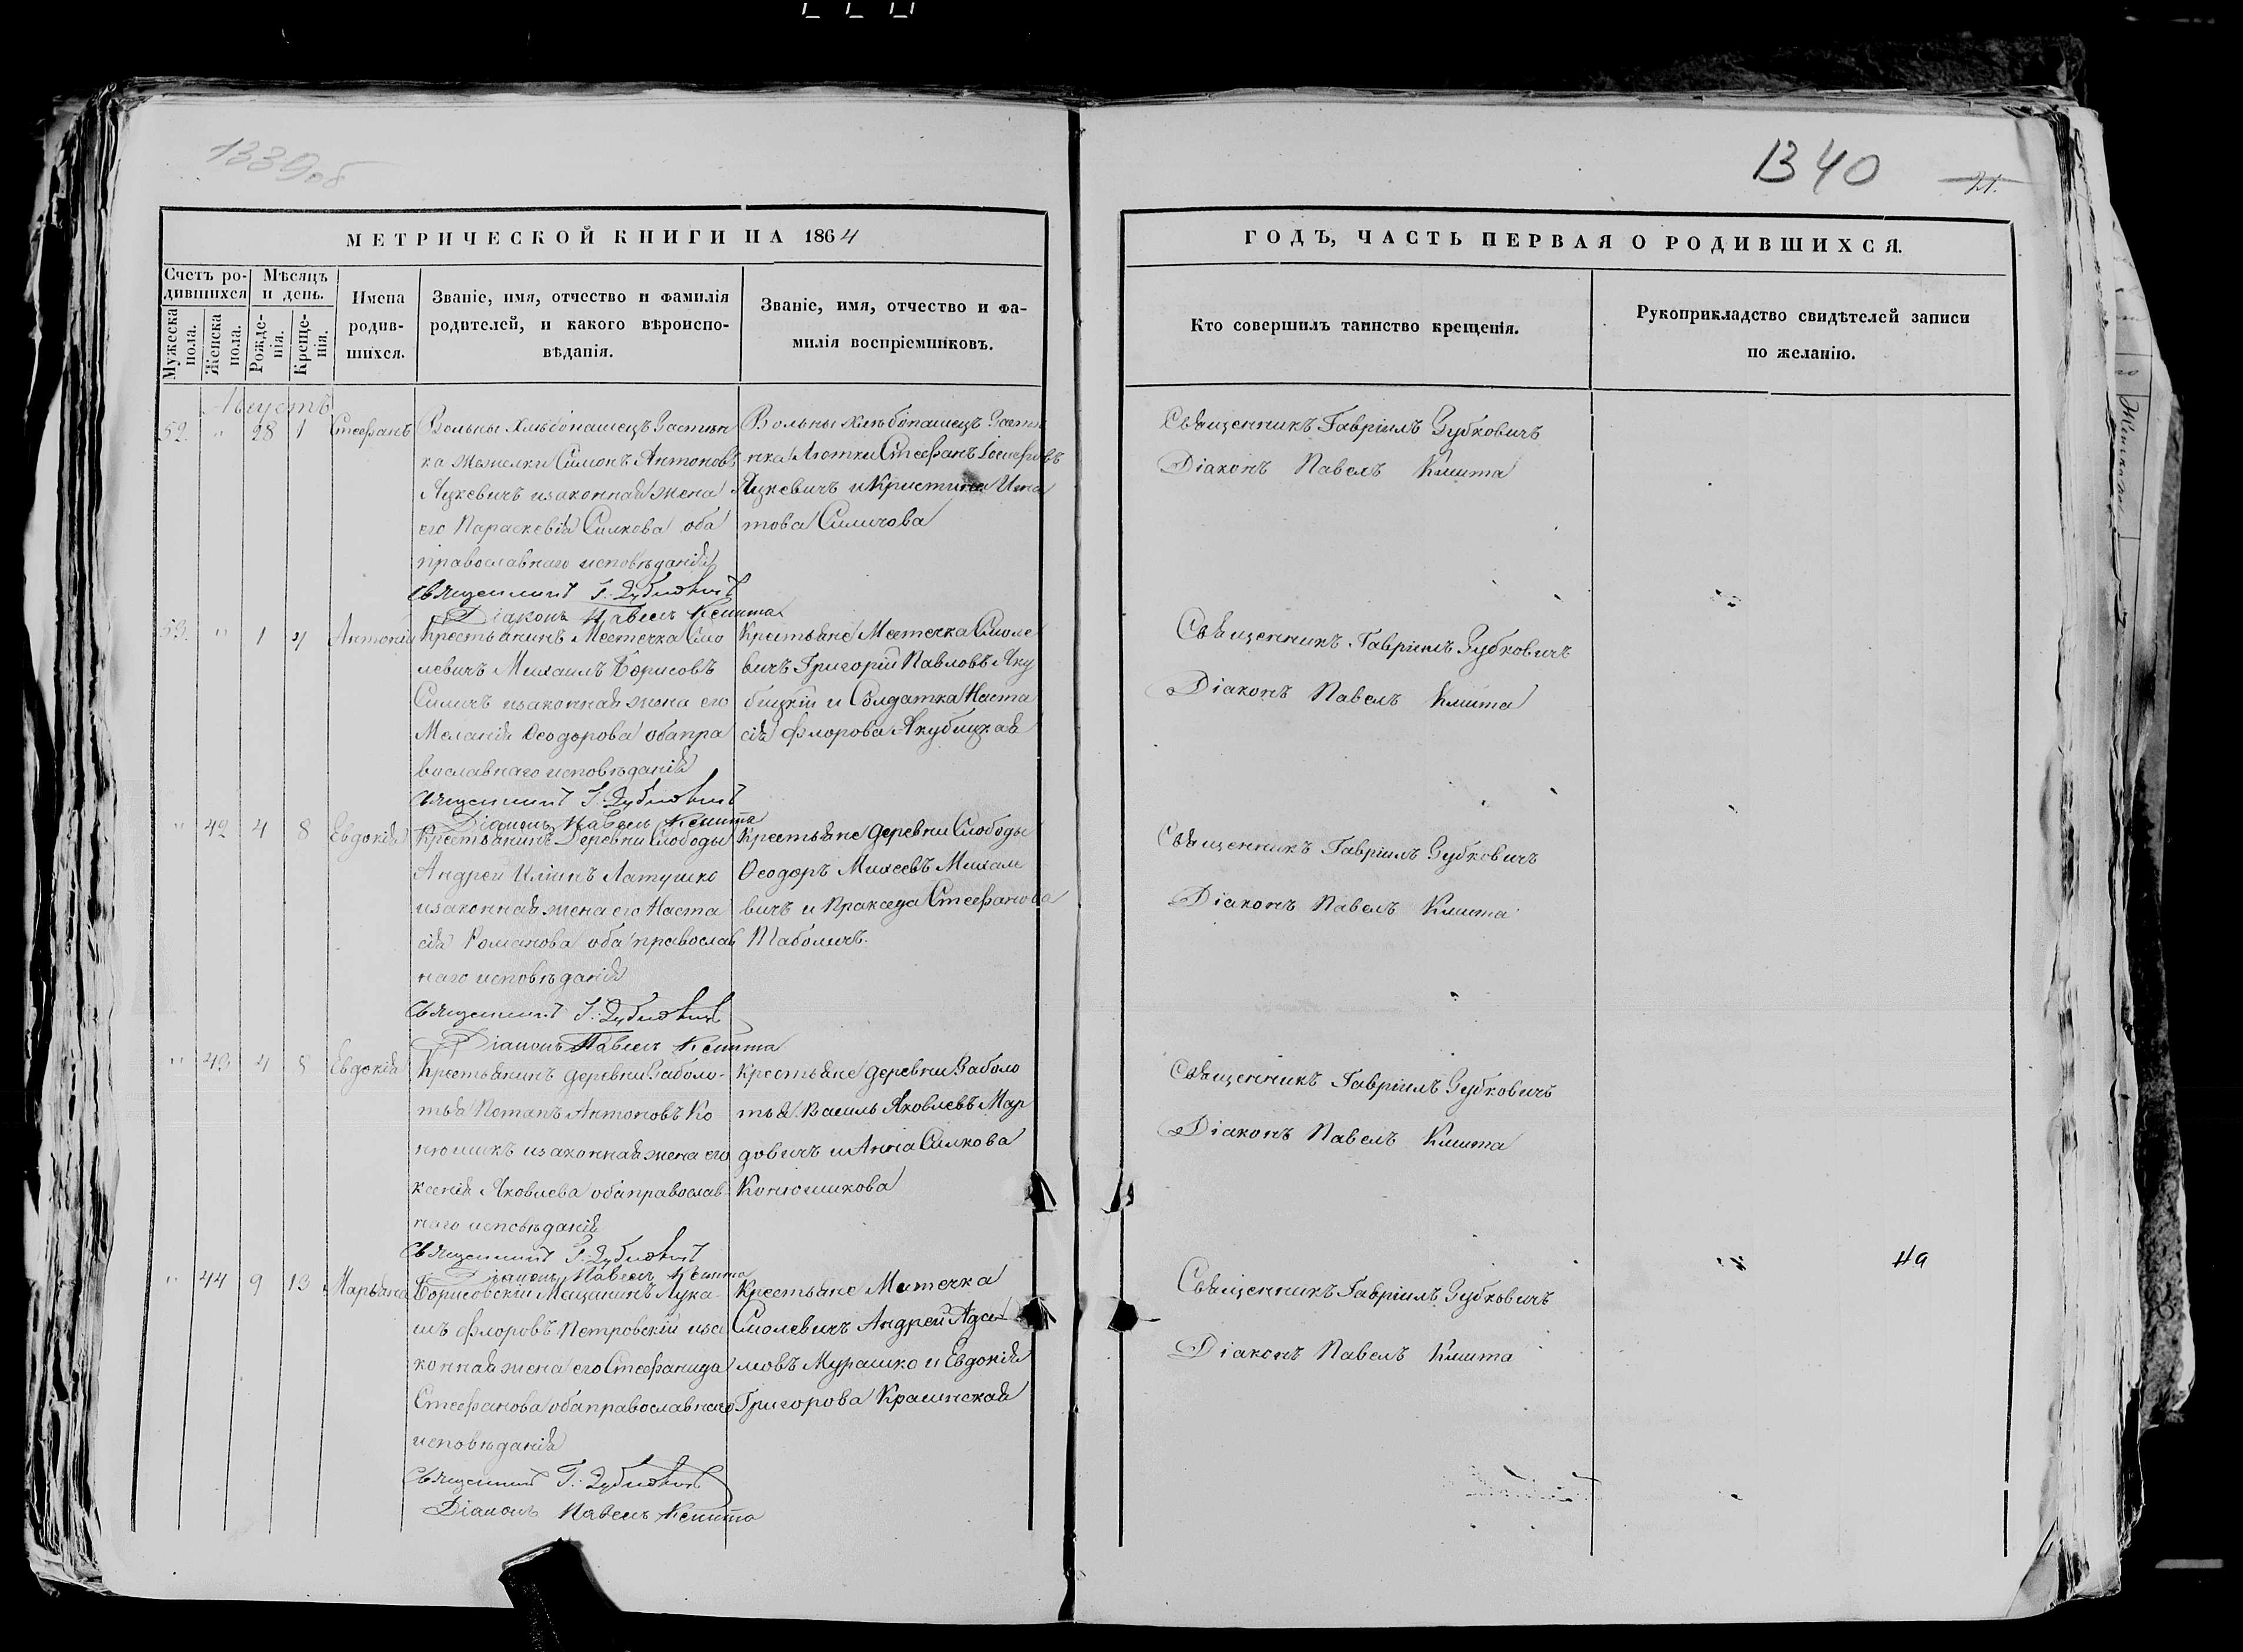 1339об
1340
21.
МЕТРИЧЕСКОЙ КНИГИ НА 1864
ГОДЪ, ЧАСТЬ ПЕРВАЯ О РОДИВШИХСЯ.
Счетъ ро-
дившихся
Мужеска пола.
Женска пола.
Мѣсяцъ
и день.
Рожде-
нія.
Креще-
нія.
Имена
родив-
шихся.
Званіе, имя, отчество и фамилія
родителей, и какого вѣроиспо-
вѣданія.
Званіе, имя, отчество и фа-
милія воспріемниковъ.
Кто совершилъ таинство крещенія.
Рукоприкладство свидѣтелей записи
по желанію.
Августъ
52. " 28 1 Стефанъ
Вольны хлѣбопашецъ Застен
ка Симонъ Антоновъ
Яцкевичъ изаконная жена
его Параскевія Силкова оба
православнаго исповѣданія
Священникъ Г. Зубковичъ
Діаконъ Павелъ Кмита
Вольны хлѣбопашецъ Засте
нка Стефанъ Іосифовъ
Яцкевичъ и Кристина Игна
това Силичова
Священникъ Гавріилъ Зубковичъ
Діаконъ Павелъ Кмита
53. " 1 4 Антоній
Крестьянинъ Местечка Смо
левичъ Михаилъ Борисовъ
Силичъ изаконная жена его
Меланія Ѳеодорова обапра
вославнаго исповѣданія
Священникъ Г. Зубковичъ
Діаконъ Павелъ Кмита
Крестьяне Местечка Смоле
вичъ Григорій Павловъ Яку
бицкій и Солдатка Наста
сія Флорова Якубицкая
Священникъ Гавріилъ Зубковичъ
Діаконъ Павелъ Кмита
" 42 4 8 Евдокія
Крестьянинъ Деревни Слободы
Андрей Иліинъ Латушко
изаконная жена его Наста
сія Романова оба православ
наго исповѣданія
Священникъ Г. Зубковичъ
Діаконъ Павелъ Кмита
Крестьяне деревни Слободы
Ѳеодоръ Михеевъ Михале
вичъ и Пракседа Стефанова
Таболичъ.
Священникъ Гавріилъ Зубковичъ
Діаконъ Павелъ Кмита
" 43 4 8 Евдокія
Крестьянинъ деревни Заболо-
тья Потапъ Антоновъ Ко
нюшикъ изаконная жена его
Ксенія Яковлева обаправослав
наго исповѣданія
Священникъ Г. Зубковичъ
Діаконъ Павелъ Кмита
Крестьяне деревни Заболо
тья Василь Яковлевъ Мар
довичъ и Анна Силкова
Конюшикова
Священникъ Гавріилъ Зубковичъ
Діаконъ Павелъ Кмита
" 44 9 13 Марьяна
Борисовскій Мещанинъ Лука-
шъ Флоровъ Петровскій иза
конная жена его Стефанида
Стефанова обаправославнаго
исповѣданія
Священникъ Г. Зубковичъ
Діаконъ Павелъ Кмита
Крестьяне Местечка
Смолевичъ Андрей Ада
мовъ Мурашко и Евдокія
Григорова Крашнская
Священникъ Гавріилъ Зубковичъ
Діаконъ Павелъ Кмита